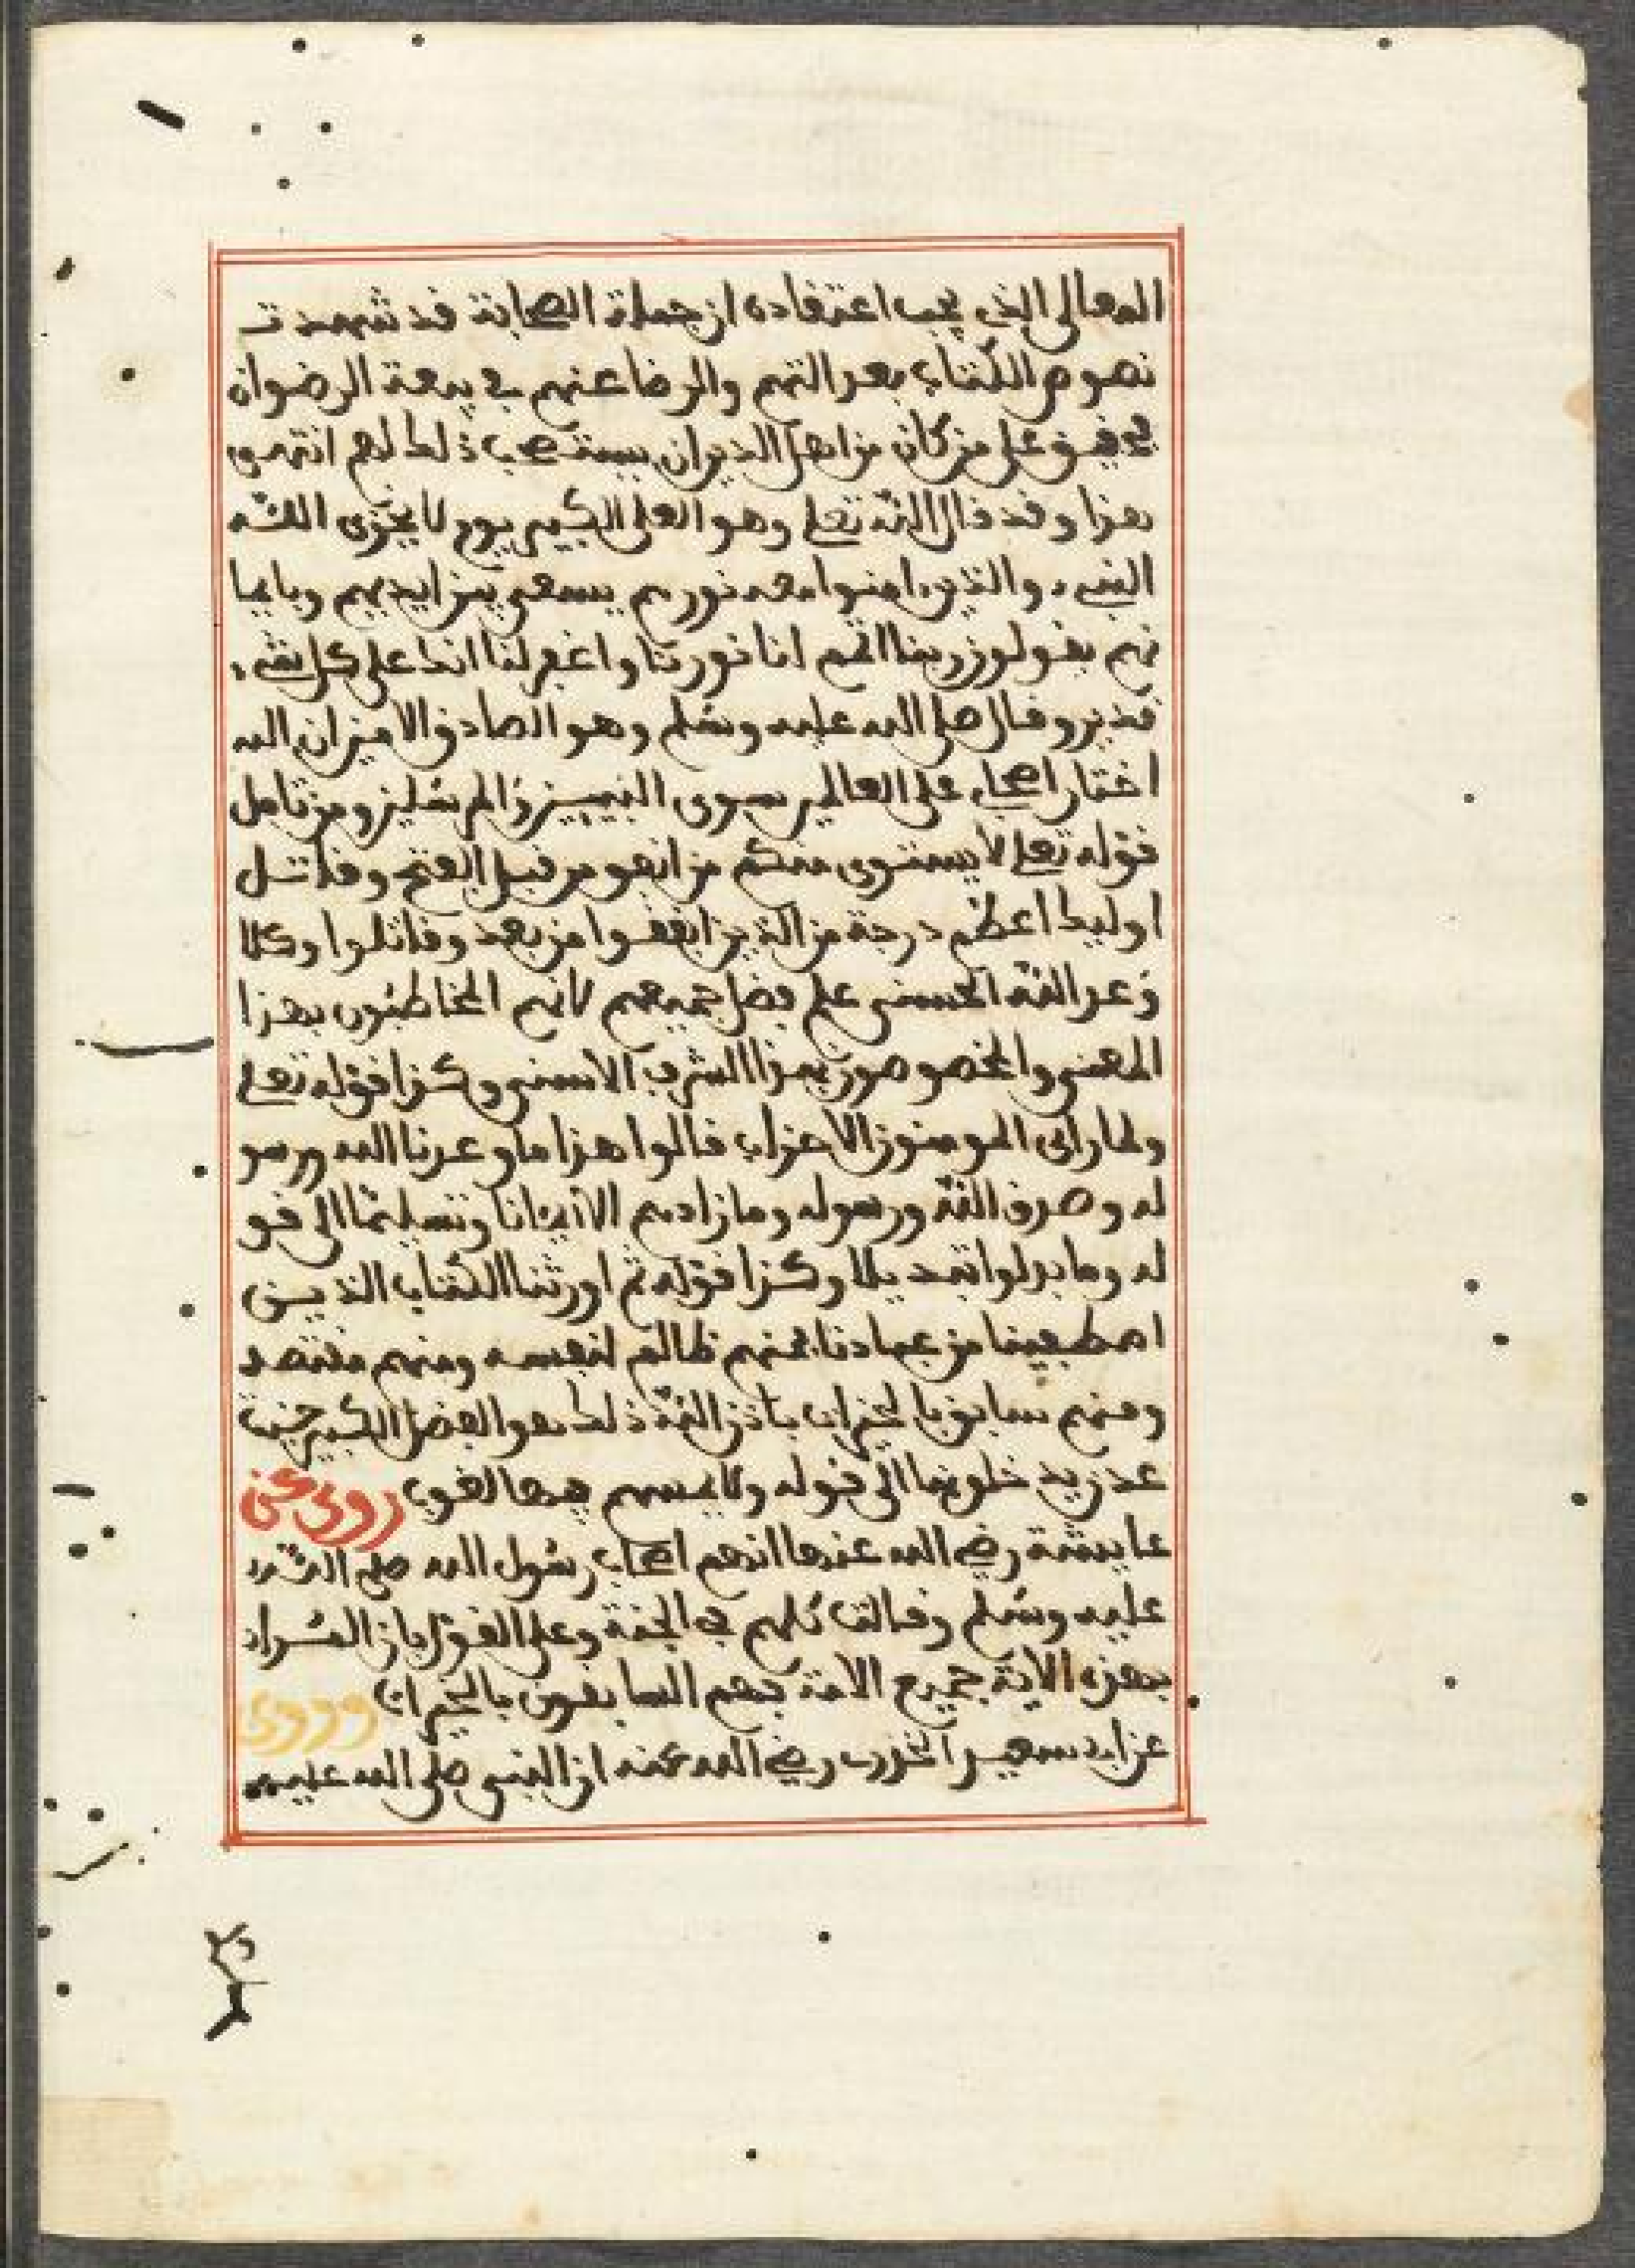 المعالي الذي يجب اعتقاده ان جملة الصحابة قد شهدت
نصوص الكتاب بعدالتهم والرضا عنهم في بيعة الرضوان
على من كان من اهل الديوان ذلك لهم انتهى
هذا وقد قال الله تعلى وهو العلي الكبير يوم لا يخزي الله
النبيء والذين ءامنوا معه نورهم يسعى بين ايديهم وبايما
نهم يقولون ربنا اتمم لنا نورنا واغفر لنا انك على كل شيء
قدير وقال صلى الله عليه وسلم وهو الصادق الامين ان الله
اختار اصحابي على العالمين سوى النبيين والمرسلين ومن تامل
قوله تعلى لا يستوي منكم من انفق من قبل الفتح وقاتل
اوليك اعظم درجة من الذين انفقوا من بعد وقاتلوا وكلا
وعد الله الحسنى علم فضل جميعهم لانهم المخاطبون بهذا
المعنى والمخصوصون بهذا الشرف الاسنى وكذا قوله تعلى
ولما راى المومنون الاحزاب قالوا هذا ما وعدنا الله ورسو
له وصدق الله ورسوله وما زادهم الا ايمانا وتسليما الى قو
له وما بدلوا تبديلا وكذا قوله ثم اورثنا الكتاب الذين
اصطفينا من عبادنا فمنهم ظالم لنفسه ومنهم مقتصد
ومنهم سابق بالخيرات باذن الله ذلك هو الفضل الكبير جنت
عدن يدخلونها الى قوله ولا يمسهم فيها لغوب روي عن
عايشة رضي الله عنها انهم اصحاب رسول الله صلى الله
عليه وسلم وقالت كلهم في الجنة وعلى القول بان المراد
بهذه الاية جميع الامة فهم السابقون بالخيرات وروي
عن ابي سعيد الخدري رضي الله عنه ان النبي صلى الله عليه